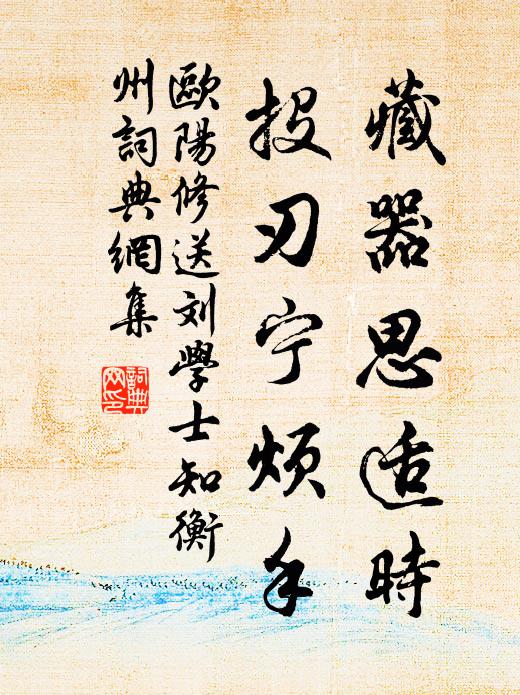 藏器思适時
投刃宁烦手
歐陽修送刘學士知衡
州詞典網集
詞典
网印